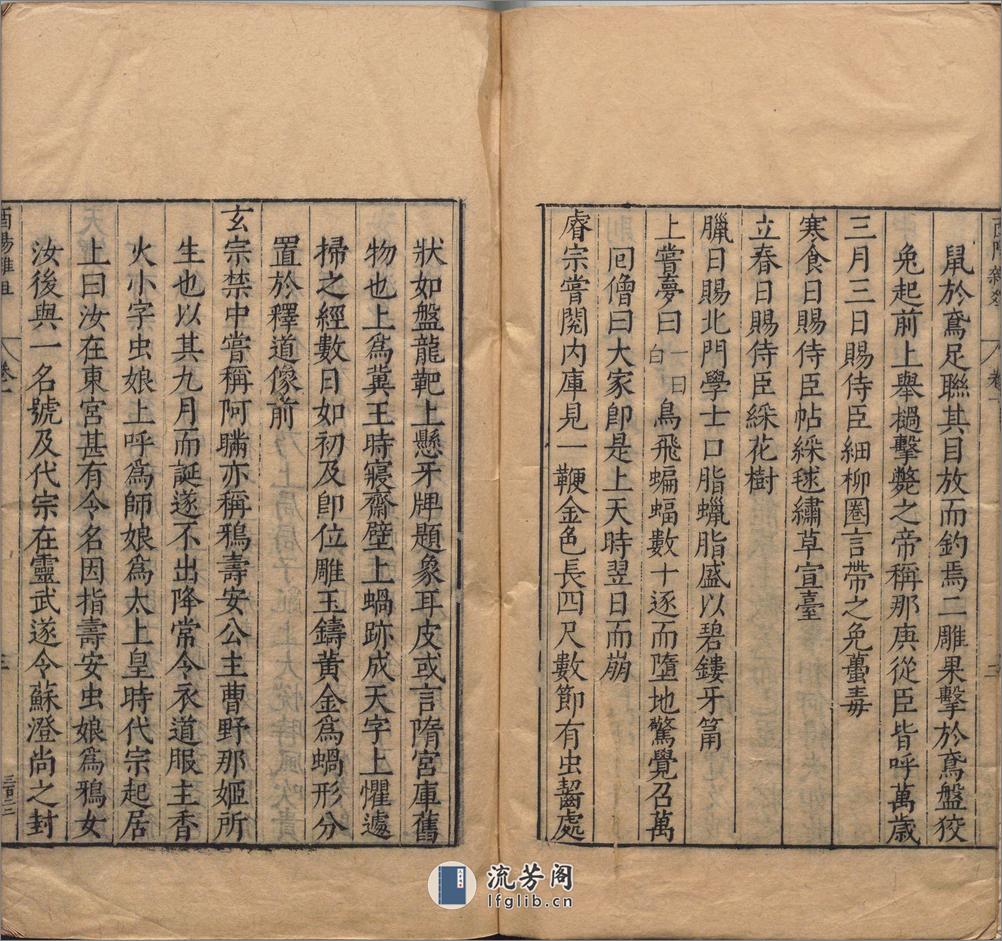 酉陽雜俎 卷一
鼠於鳶足聯其目放而釣焉二雕果擊於鳶盤狡
兔起前上舉檛擊斃之帝稱那庚從臣皆呼萬歲
三月三日賜侍臣細柳圈言帶之免蠆毒
寒食日賜侍臣帖綵毬繡草宣臺
立春日賜侍臣綵花樹
臘日賜北門學士口脂蠟脂盛以碧鏤牙筩
上嘗夢曰一曰白鳥飛蝙蝠數十逐而墮地驚覺召萬
囘僧曰大家即是上天時翌日而崩
睿宗嘗閱內庫見一鞭金色長四尺數節有虫齧處
狀如盤龍靶上懸牙牌題象耳皮或言隋宮庫舊
物也上爲冀王時寢齋壁上蝸跡成天字上懼遽
掃之經數日如初及即位雕玉鑄黃金爲蝸形分
置於釋道像前
玄宗禁中嘗稱阿瞞亦稱鴉壽安公主曹野那姬所
生也以其九月而誕遂不出降常令衣道服主香
火小字虫娘上呼爲師娘爲太上皇時代宗起居
上曰汝在東宮甚有令名因指壽安虫娘爲鴉女
汝後與一名號及代宗在靈武遂令蘇澄尚之封
酉陽雜俎 卷一 三 三百二二
流芳阁
lfglib.cn